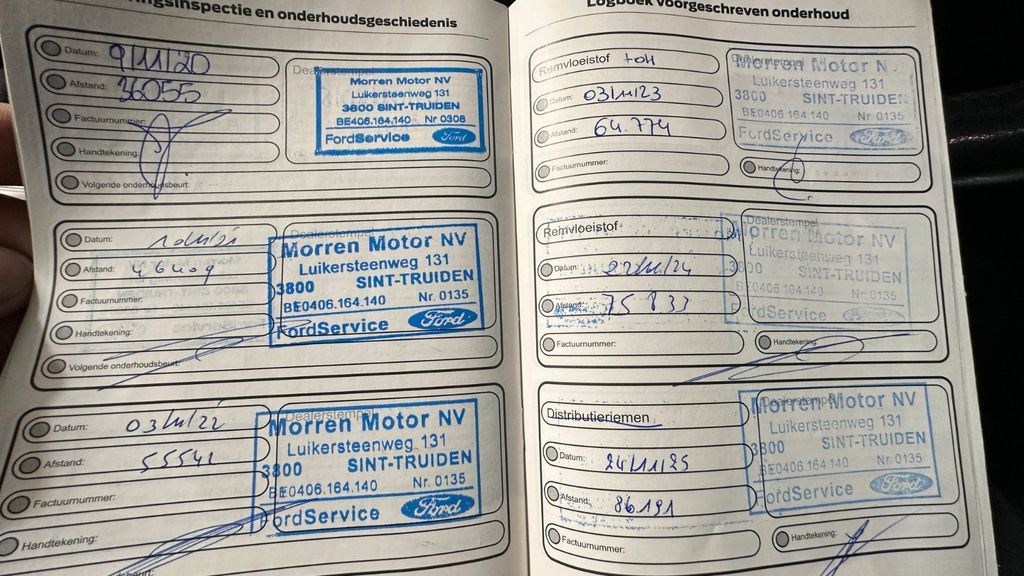 ngsinspectie en onderhoudsgeschiedenis
Datum: 9/11/20
Afstand: 36055
Factuurnummer:
Handtekening:
Volgende onderhoudsbeurt:
Dealerstempel
Morren Motor NV
Luikersteenweg 131
3800 SINT-TRUIDEN
BE406.164.140 Nr 0308
FordService Ford
Datum:
Afstand: 46409
Factuurnummer:
Handtekening:
Volgende onderhoudsbeurt:
Dealerstempel
Morren Motor NV
Luikersteenweg 131
3800 SINT-TRUIDEN
BE0406.164.140 Nr. 0135
FordService Ford
Datum: 03/11/22
Afstand: 55541
Factuurnummer:
Handtekening:
Dealerstempel
Morren Motor NV
Luikersteenweg 131
3800 SINT-TRUIDEN
BE0406.164.140 Nr. 0135
FordService Ford
Logboek voorgeschreven onderhoud
Remvloeistof
Datum: 03/11/23
Afstand: 64.774
Factuurnummer:
Handtekening:
Dealerstempel
Morren Motor N
Luikersteenweg 131
3800 SINT-TRUIDEN
BE0406.164.140 Nr. 0135
FordService Ford
Remvloeistof
Datum: 22/11/24
Afstand: 75833
Factuurnummer:
Handtekening:
Dealerstempel
Morren Motor NV
Luikersteenweg 131
3800 SINT-TRUIDEN
BE0406.164.140 Nr. 0135
FordService
Distributieriemen
Datum: 24/11/25
Afstand: 86191
Factuurnummer:
Handtekening:
Dealerstempel
Morren Motor NV
Luikersteenweg 131
3800 SINT-TRUIDEN
BE0406.164.140 Nr. 0135
FordService Ford